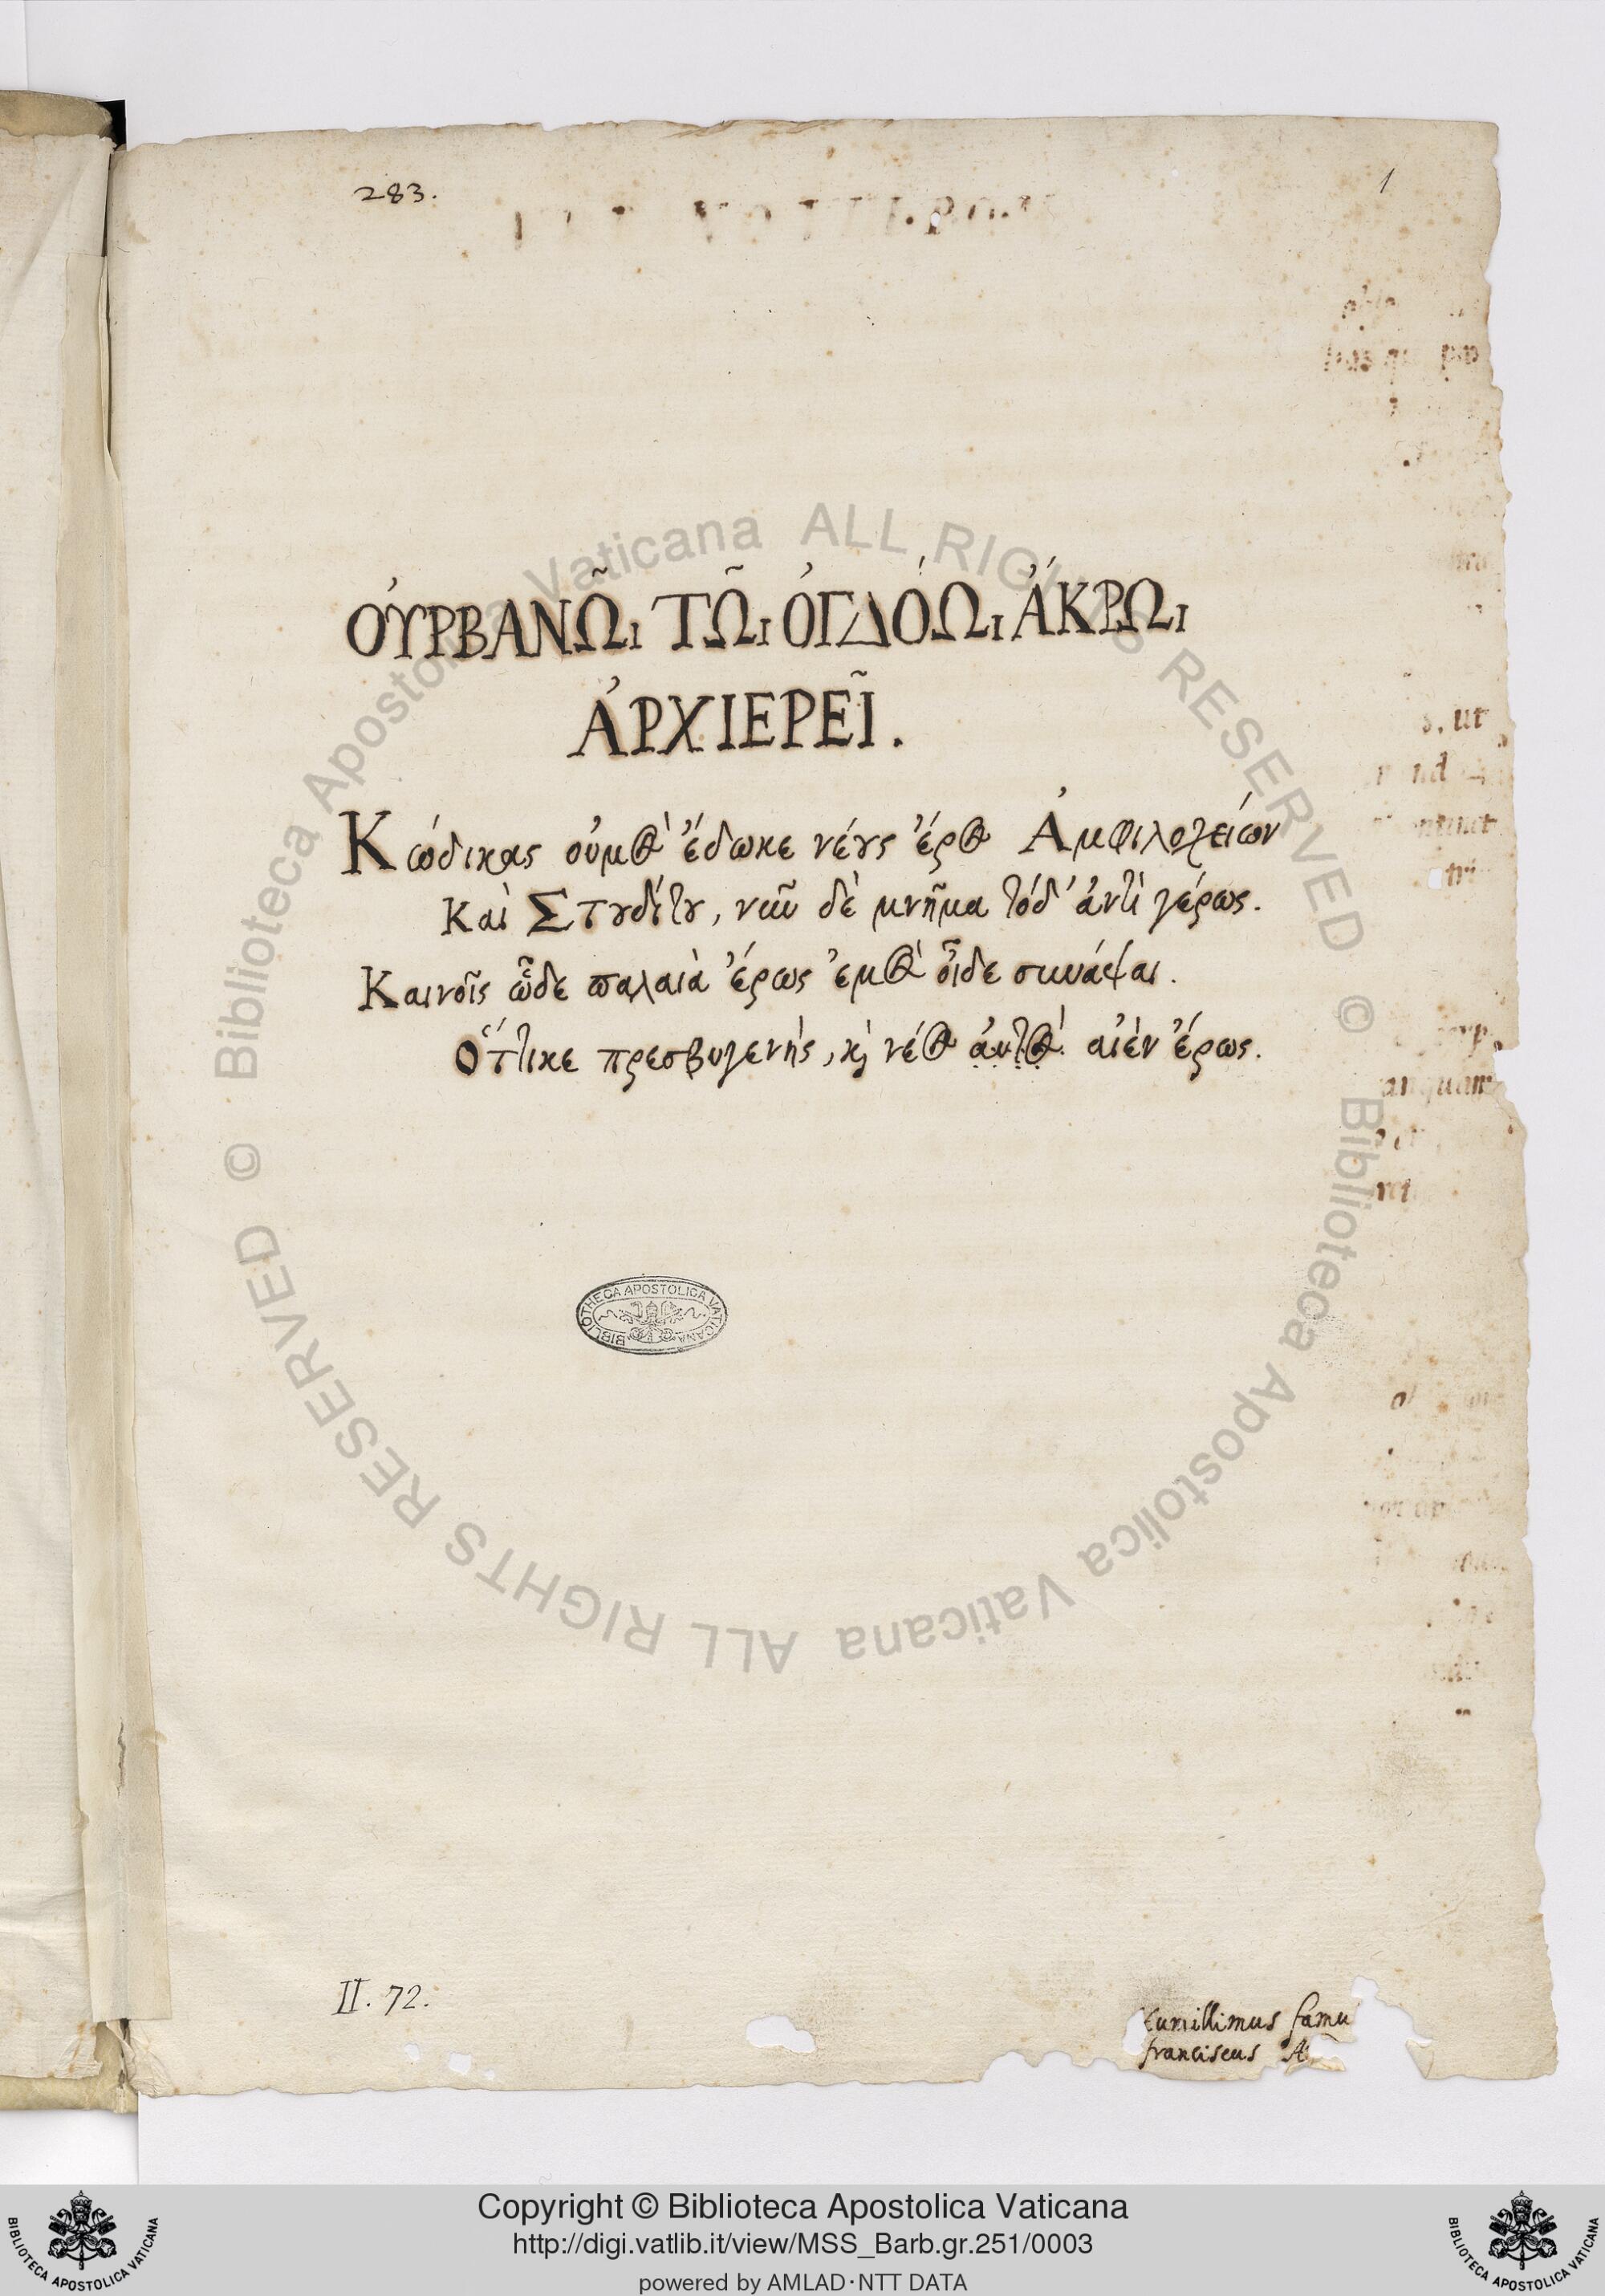 283.
1
ΟὐΡΒΑΝΩ͂Ι ΤΩ͂Ι ὈΓΔΌΩΙ ἌΚΡΩΙ
ἈΡΧΙΕΡΕΙ͂.
Κώδικας οὑμὸς ἔδωκε νέους ἔρος Ἀμφιλοχείων
Καὶ Στουδίτου, νῶϊν δὲ μνῆμα τόδ' ἀντὶ γέρως.
Καινοῖς ὧδε παλαιὰ ἔρως ἐμὸς οἶδε συνάψαι.
Ὅττικε πρεσβυγενὴς, καὶ νέος αὐτὸς αἰὲν ἔρως.
BIBLIOTHECA APOSTOLICA VATICANA
II. 72.
humillimus famu
franciscus A
Biblioteca Apostolica Vaticana ALL RIGHTS RESERVED ©
Biblioteca Apostolica Vaticana ALL RIGHTS RESERVED ©
Copyright © Biblioteca Apostolica Vaticana
http://digi.vatlib.it/view/MSS_Barb.gr.251/0003
powered by AMLAD·NTT DATA
BIBLIOTECA APOSTOLICA VATICANA
BIBLIOTECA APOSTOLICA VATICANA